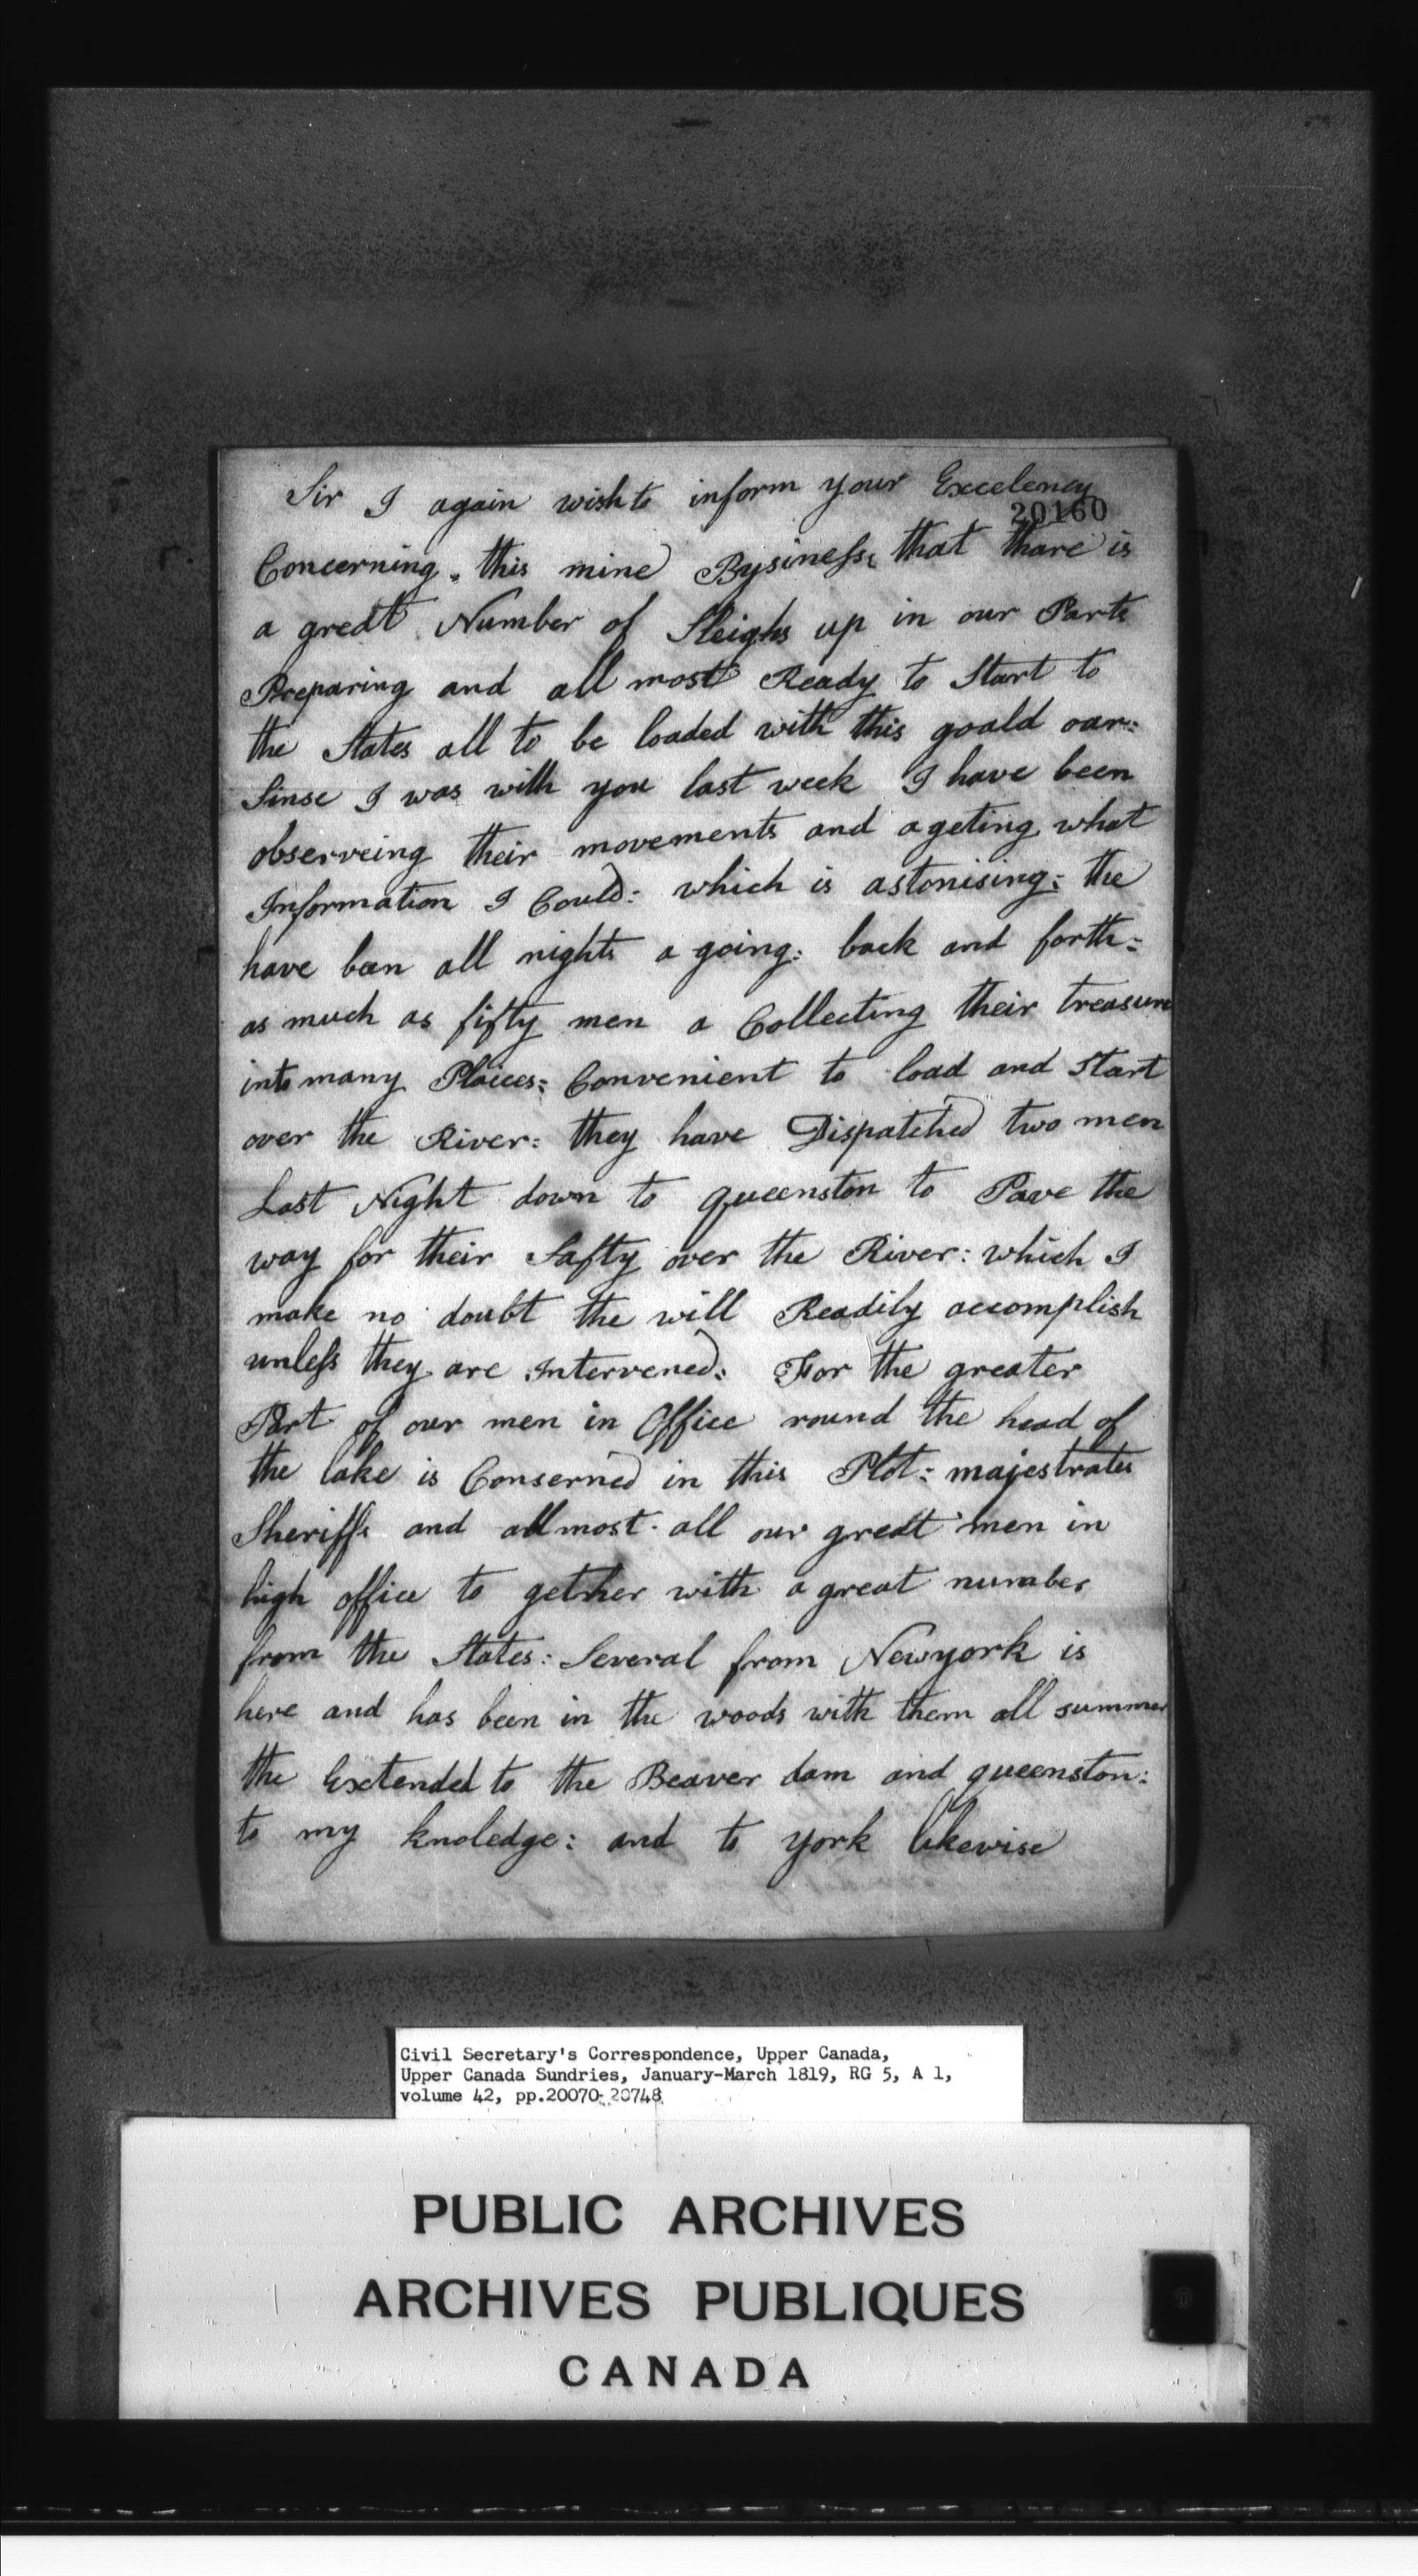 Sir I again wish to inform your Excelency
20160
Concerning. this mine Bysiness: that thare is
a gredt Number of Sleighs up in our Parts
Preparing and all most Ready to Start to
the States all to be loaded with this goald oar:
Sinse I was with you last week I have been
observeing their movements and a geting what
Information I Could: which is astonising: the
have ben all nights a going: back and forth:
as much as fifty men a Collecting their treasure
into many Plaices: Convenient to load and Start
over the River: they have Dispatched two men
Last Night down to queenston to Pave the
way for their Safty over the River: which I
make no doubt the will Readily accomplish
unless they are Intervened: For the greater
Part of our men in Office round the head of
the lake is Conserned in this Plot: majestrates
Sheriffs and allmost all our gredt men in
high office to gether with a great number
from the States: Several from Newyork is
here and has been in the woods with them all summer
the Extended to the Beaver dam and queenston:
to my knoledge: and to york likewise
Civil Secretary's Correspondence, Upper Canada,
Upper Canada Sundries, January-March 1819, RG 5, A 1,
volume 42, pp.20070-20748
PUBLIC ARCHIVES
ARCHIVES PUBLIQUES
CANADA